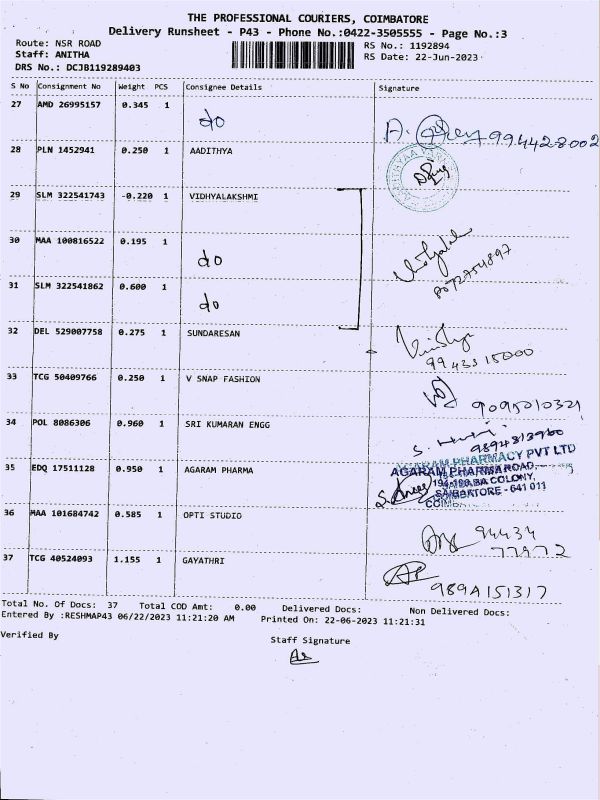 THE PROFESSIONAL COURIERS, COIMBATORE
Delivery Runsheet - P43 - Phone No.:0422-3505555 - Page No.:3
Route: NSR ROAD RS No.: 1192894
Staff: ANITHA RS Date: 22-Jun-2023
DRS No.: DCJB119289403
S No Consignment No Weight PCS Consignee Details Signature
27 AMD 26995157 0.345 1 do
A. 994428002
28 PLN 1452941 0.250 1 AADITHYA
29 SLM 322541743 -0.220 1 VIDHYALAKSHMI
30 MAA 100816522 0.195 1 do
31 SLM 322541862 0.600 1 do
32 DEL 529007758 0.275 1 SUNDARESAN
99433 15000
33 TCG 50409766 0.250 1 V SNAP FASHION
9095010321
34 POL 8086306 0.960 1 SRI KUMARAN ENGG
9894813960
35 EDQ 17511128 0.950 1 AGARAM PHARMA
AGARAM PHARMACY PVT LTD
SAIBABA COLONY,
COIMBATORE - 641 011
36 MAA 101684742 0.585 1 OPTI STUDIO
94434
77972
37 TCG 40524093 1.155 1 GAYATHRI
989A151317
Total No. Of Docs: 37 Total COD Amt: 0.00 Delivered Docs: Non Delivered Docs:
Entered By :RESHMAP43 06/22/2023 11:21:20 AM Printed On: 22-06-2023 11:21:31
Verified By Staff Signature